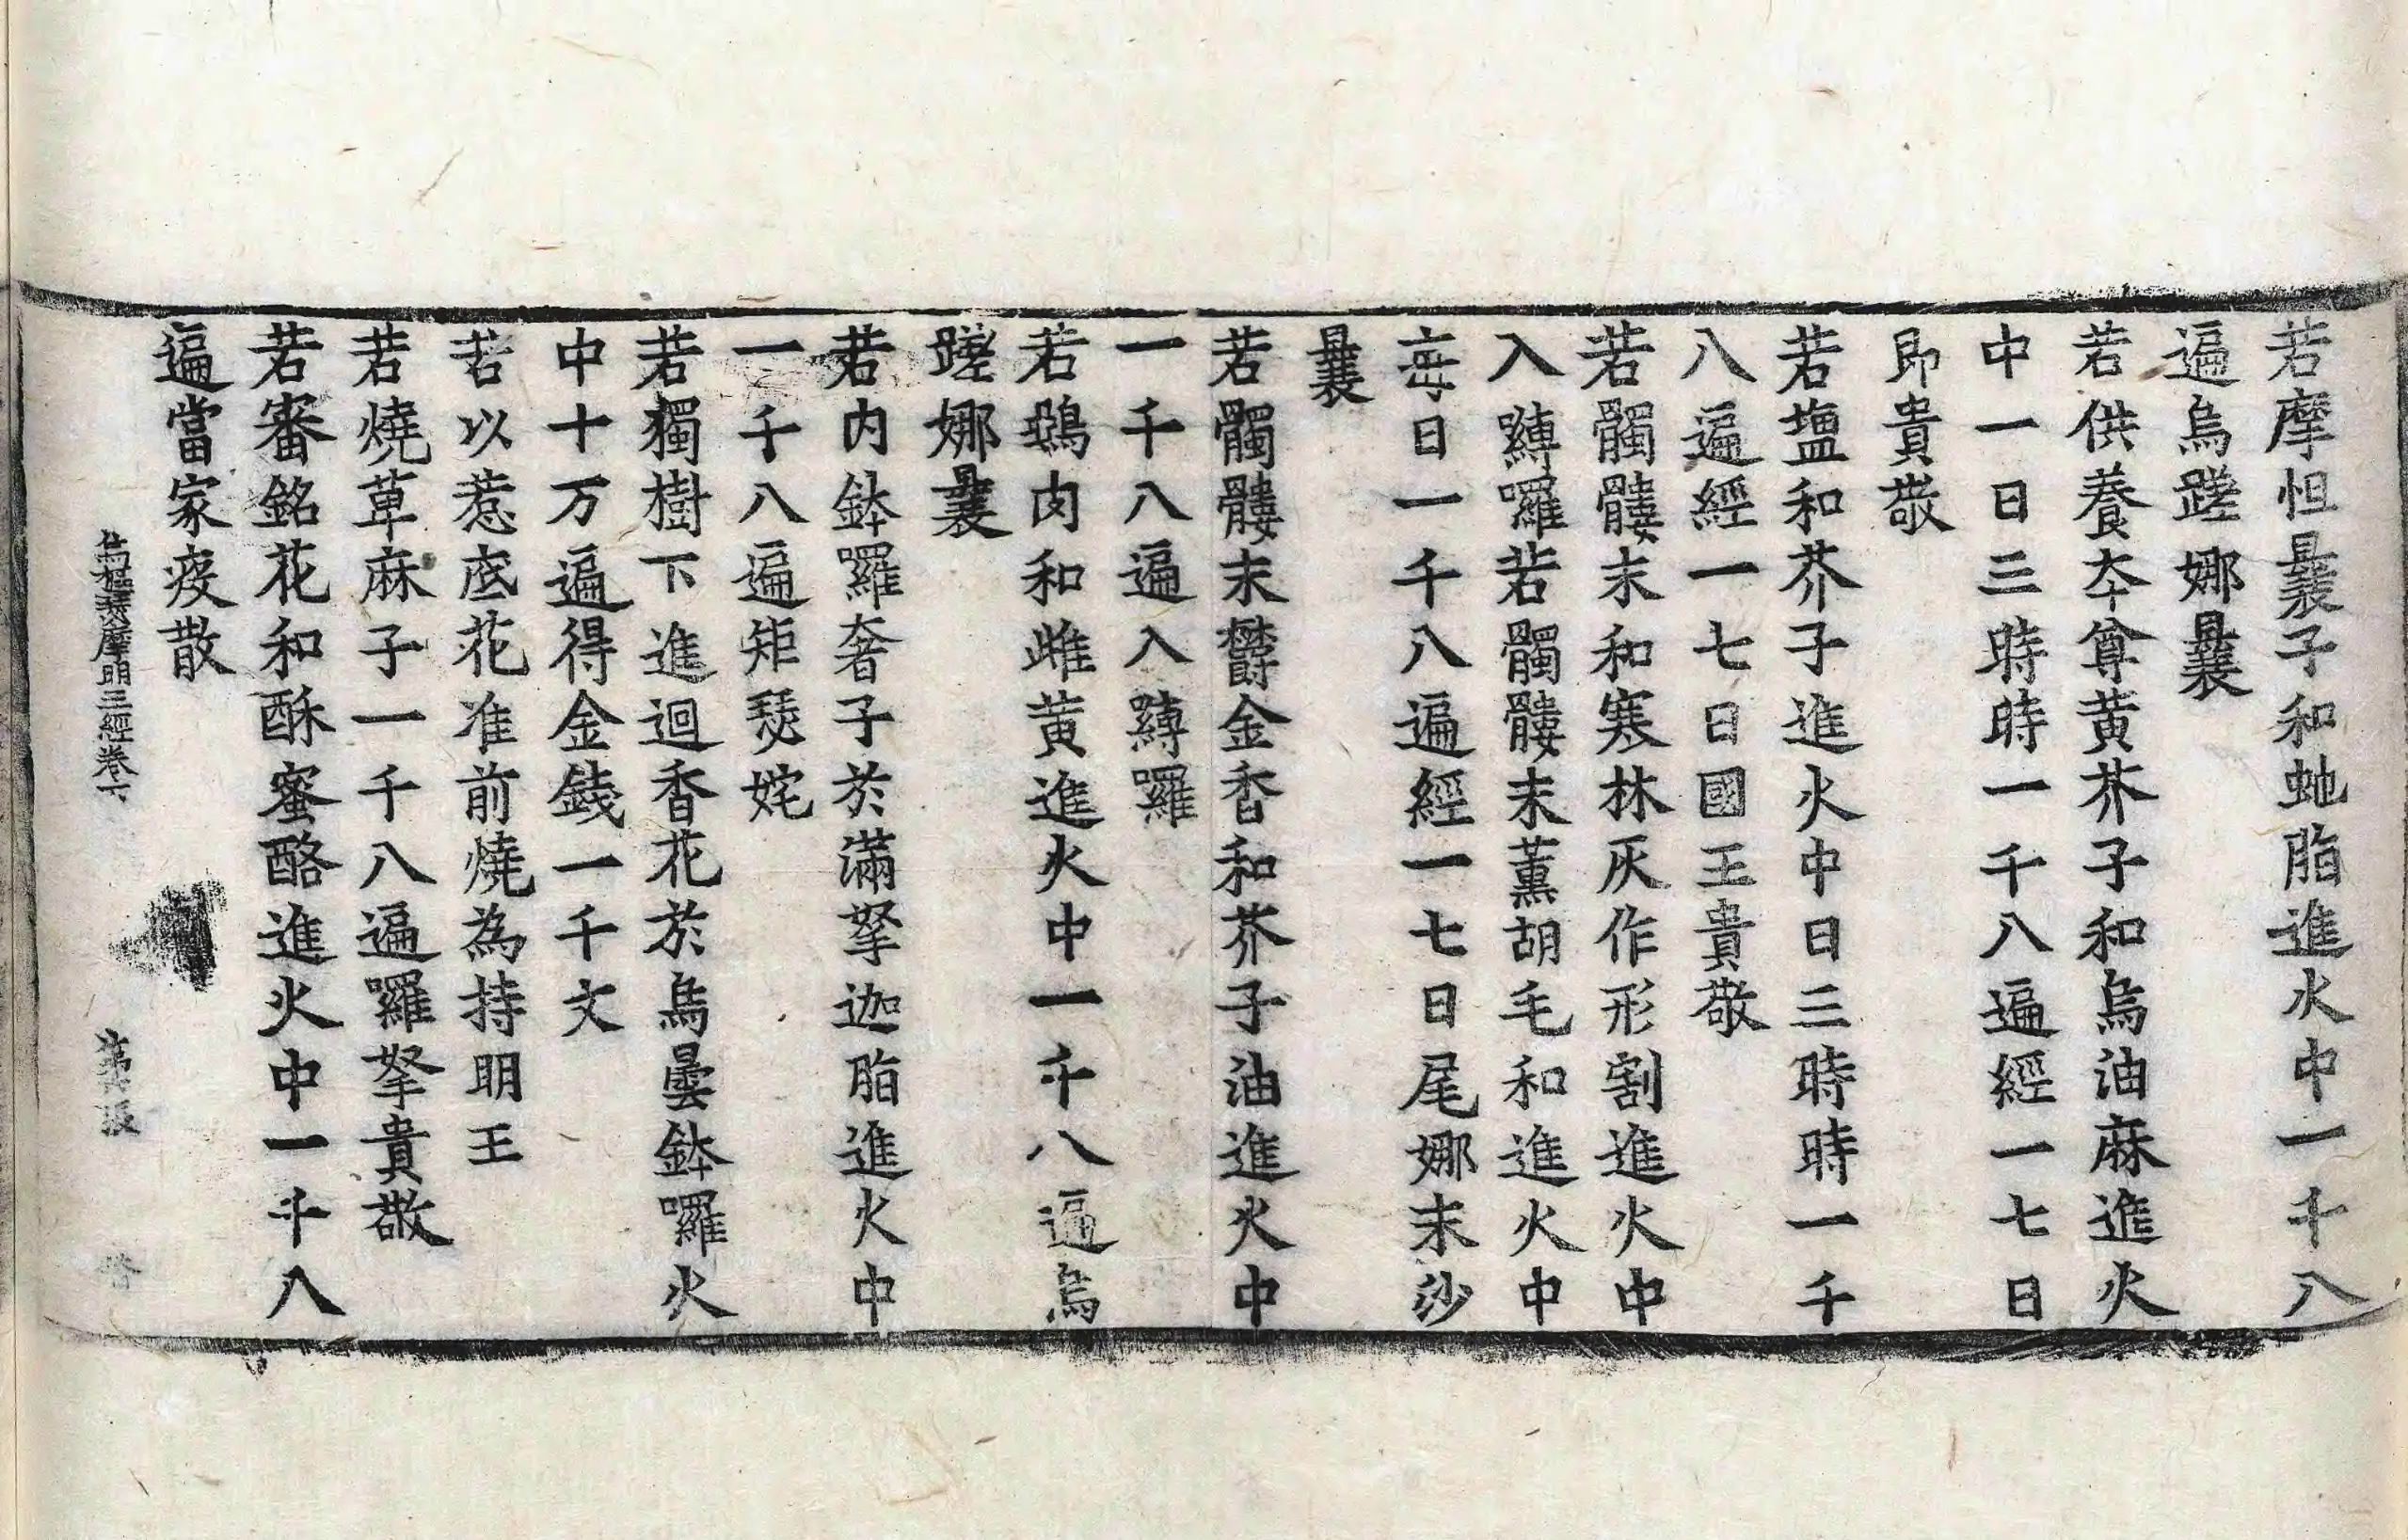 若摩怛曩子和虵脂進火中一千八
遍烏蹉娜曩
若供養夲尊黄芥子和烏油麻進火
中一日三時時一千八遍經一七日
即貴敬
若塩和芥子進火中日三時時一千
八遍經一七日國王貴敬
若髑髏末和寒林灰作形割進火中
入縛囉若髑髏末薰胡毛和進火中
每日一千八遍經一七日尾娜末沙
曩
若髑髏末欝金香和芥子油進火中
一千八遍入縛囉
若鵄肉和雌黄進火中一千八遍烏
蹉娜曩
若内鉢羅奢子於滿拏迦脂進火中
一千八遍矩瑟姹
若獨樹下進迴香花於烏曇鉢囉火
中十万遍得金錢一千文
若以惹底花准前燒為持明王
若燒草麻子一千八遍囉拏貴敬
若審銘花和酥蜜酪進火中一千八
遍當家疫散
摩明王經卷下 第 張